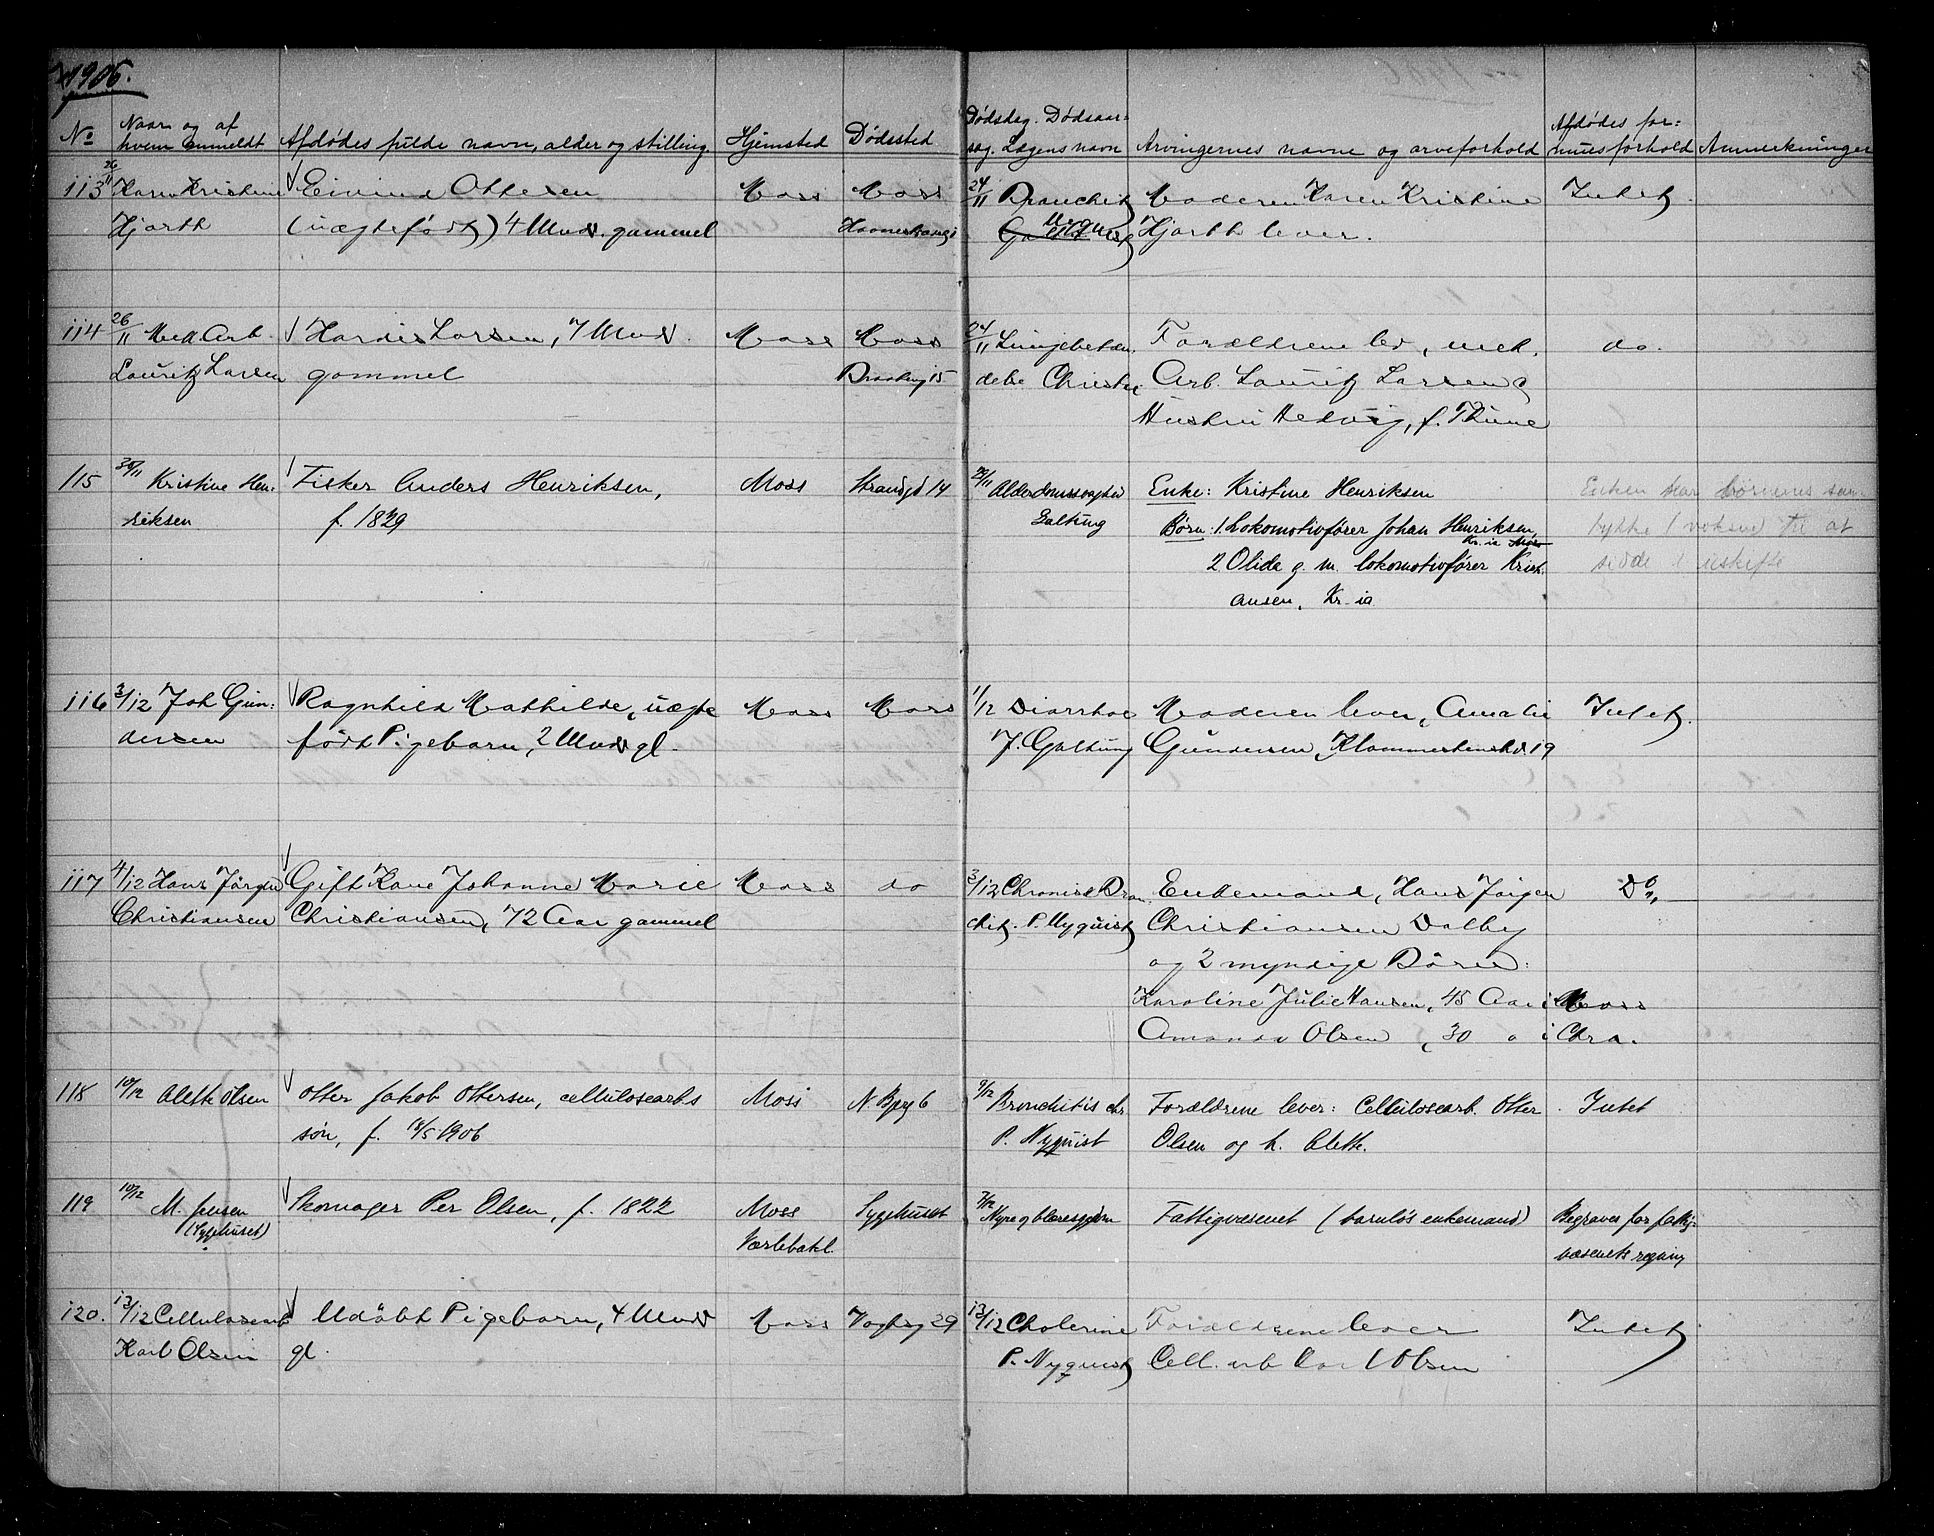 1906.
No
Naar og af hvem anmeldt
Afdødes fulde navn, alder og stilling.
Hjemsted
Dødssted
Dødsdag. Dødsaarsag. Lægens navn
Arvingernes navne og arveforhold
Afdødes formuesforhold
Anmerkninger
113 26/11 Karen Kristine Eivind Ottesen Moss Moss 24/11 Bronchit Moderen Karen Kristine Intet.
Hjorth (uægtefødt) 4 Mndr. gammel Nyquist Hjorth lever.
114 26/11 Med. Arb. Hardis Larsen, 7 Mndr. Moss Moss 24/11 Lungebetæn- Forældrene lev, med. do.
Lauritz Larsen gammel 15 delse Arb. Lauritz Larsen og
Hustru Hedvig, f. Thune
115 30/11 Kristine Hen- Fisker Anders Henriksen, Moss Strandgd 14 Enke: Kristine Henriksen Enken har børnenes sam-
riksen f. 1829 Galtung Børn: 1. Lokomotivfører Johan Henriksen, tykke (voksne) til at
Kr.ia
2 Olide g. m. lokomotivfører Krist- sidde i uskifte
ansen, Kr.ia
116 3/12 Joh Gun- Ragnhild Mathilde, uægte Moss Moss 1/12 Diarrhoe Moderen lever, Amalie Intet.
dersen født Pigebarn, 2 Mndr gl. J. Galtung Gundersen, 19
117 4/12 Hans Jörgen Gift Kone Johanne Marie Moss do 3/12 Chronisk Bron- Enkemand, Hans Jörgen Do
Christiansen Christiansen, 72 Aar gammel chit. P. Nyquist Christiansen Dalby
og 2 myndige Börn:
Karoline Julie Hansen, 45 Aar i Moss
Amanda Olsen, 30 " i Chra.
118 10/12 Alette Olsen Otter Jakob Ottersen, cellulosearb.s Moss N. Bjerg 6 9/12 Bronchitis chr. Forældrene lever: Cellulosearb. Otter Intet
søn, f. 1906 P. Nyquist Olsen og h. Alette.
119 10/12 M. Jensen Skomager Per Olsen, f. 1822 Moss Sygehuset 7/12 Nyre og blæresygdom Fattigvæsenet (barnløs enkemand) Begraves for fattig-
(Sygehuset) Værlebakk. væsenets regning
120. 13/12 Cellulosearb. Udöbt Pigebarn, 4 Mndr Moss Vogtsg 29 13/12 Cholerine Forældrene lever Intet
Karl Olsen gl. P. Nyquist Cell. arb Karl Olsen